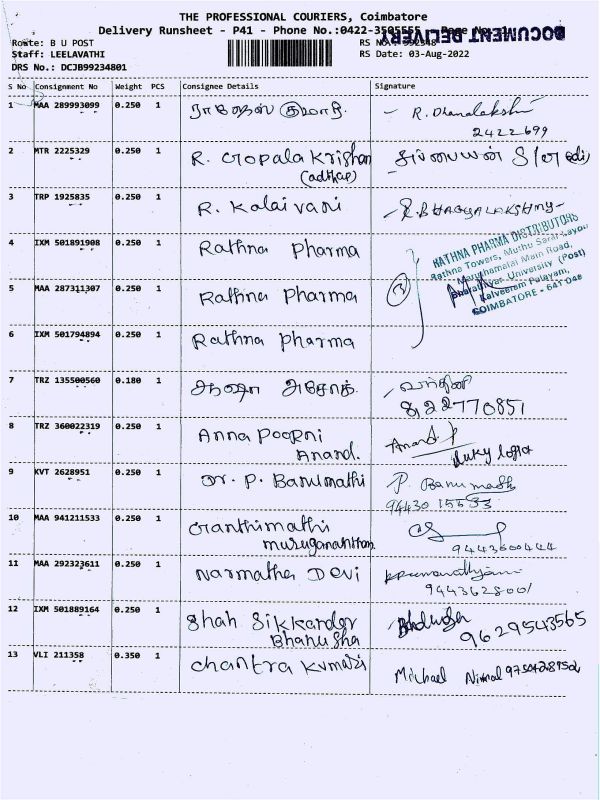 THE PROFESSIONAL COURIERS, Coimbatore
Delivery Runsheet - P41 - Phone No.:0422-3505555 Page No.
DOCUMENT DELIVERY
Route: B U POST
RS No.: 992348
Staff: LEELAVATHI
RS Date: 03-Aug-2022
DRS No.: DCJB99234801
S No Consignment No Weight PCS Consignee Details Signature
1 MAA 289993099 0.250 1 R. Dhanalakshmi
2422699
2 MTR 2225329 0.250 1 R. Gopala Krishnan
3 TRP 1925835 0.250 1 R. Kalaivani R. BHAGYALAKSHMY
4 IXM 501891908 0.250 1 Rathna Pharma
RATHNA PHARMA DISTRIBUTORS
Rathna Towers, Muthu Sarai Layou
Maruthamalai Main Road,
Bharathiyar University (Post)
Kalveeram Palayam,
COIMBATORE - 641 046
5 MAA 287311307 0.250 1 Rathna Pharma 3
6 IXM 501794894 0.250 1 Rathna Pharma
7 TRZ 135500560 0.180 1 அசோக்
8122770851
8 TRZ 360022319 0.250 1 Anna Poorni Anand P
Anand.
9 KVT 2628951 0.250 1 Dr. P. Banumathi P. Banumathi
94430 15533
10 MAA 941211533 0.250 1 Ganthimathi
muruganahtham 9443600444
11 MAA 292323611 0.250 1 Narmatha Devi
9443628001
12 IXM 501889164 0.250 1 Shah Sikkandar
Bhanusha 9629543565
13 VLI 211358 0.350 1 Chantra Kumari Michael Nirmal 9750428952